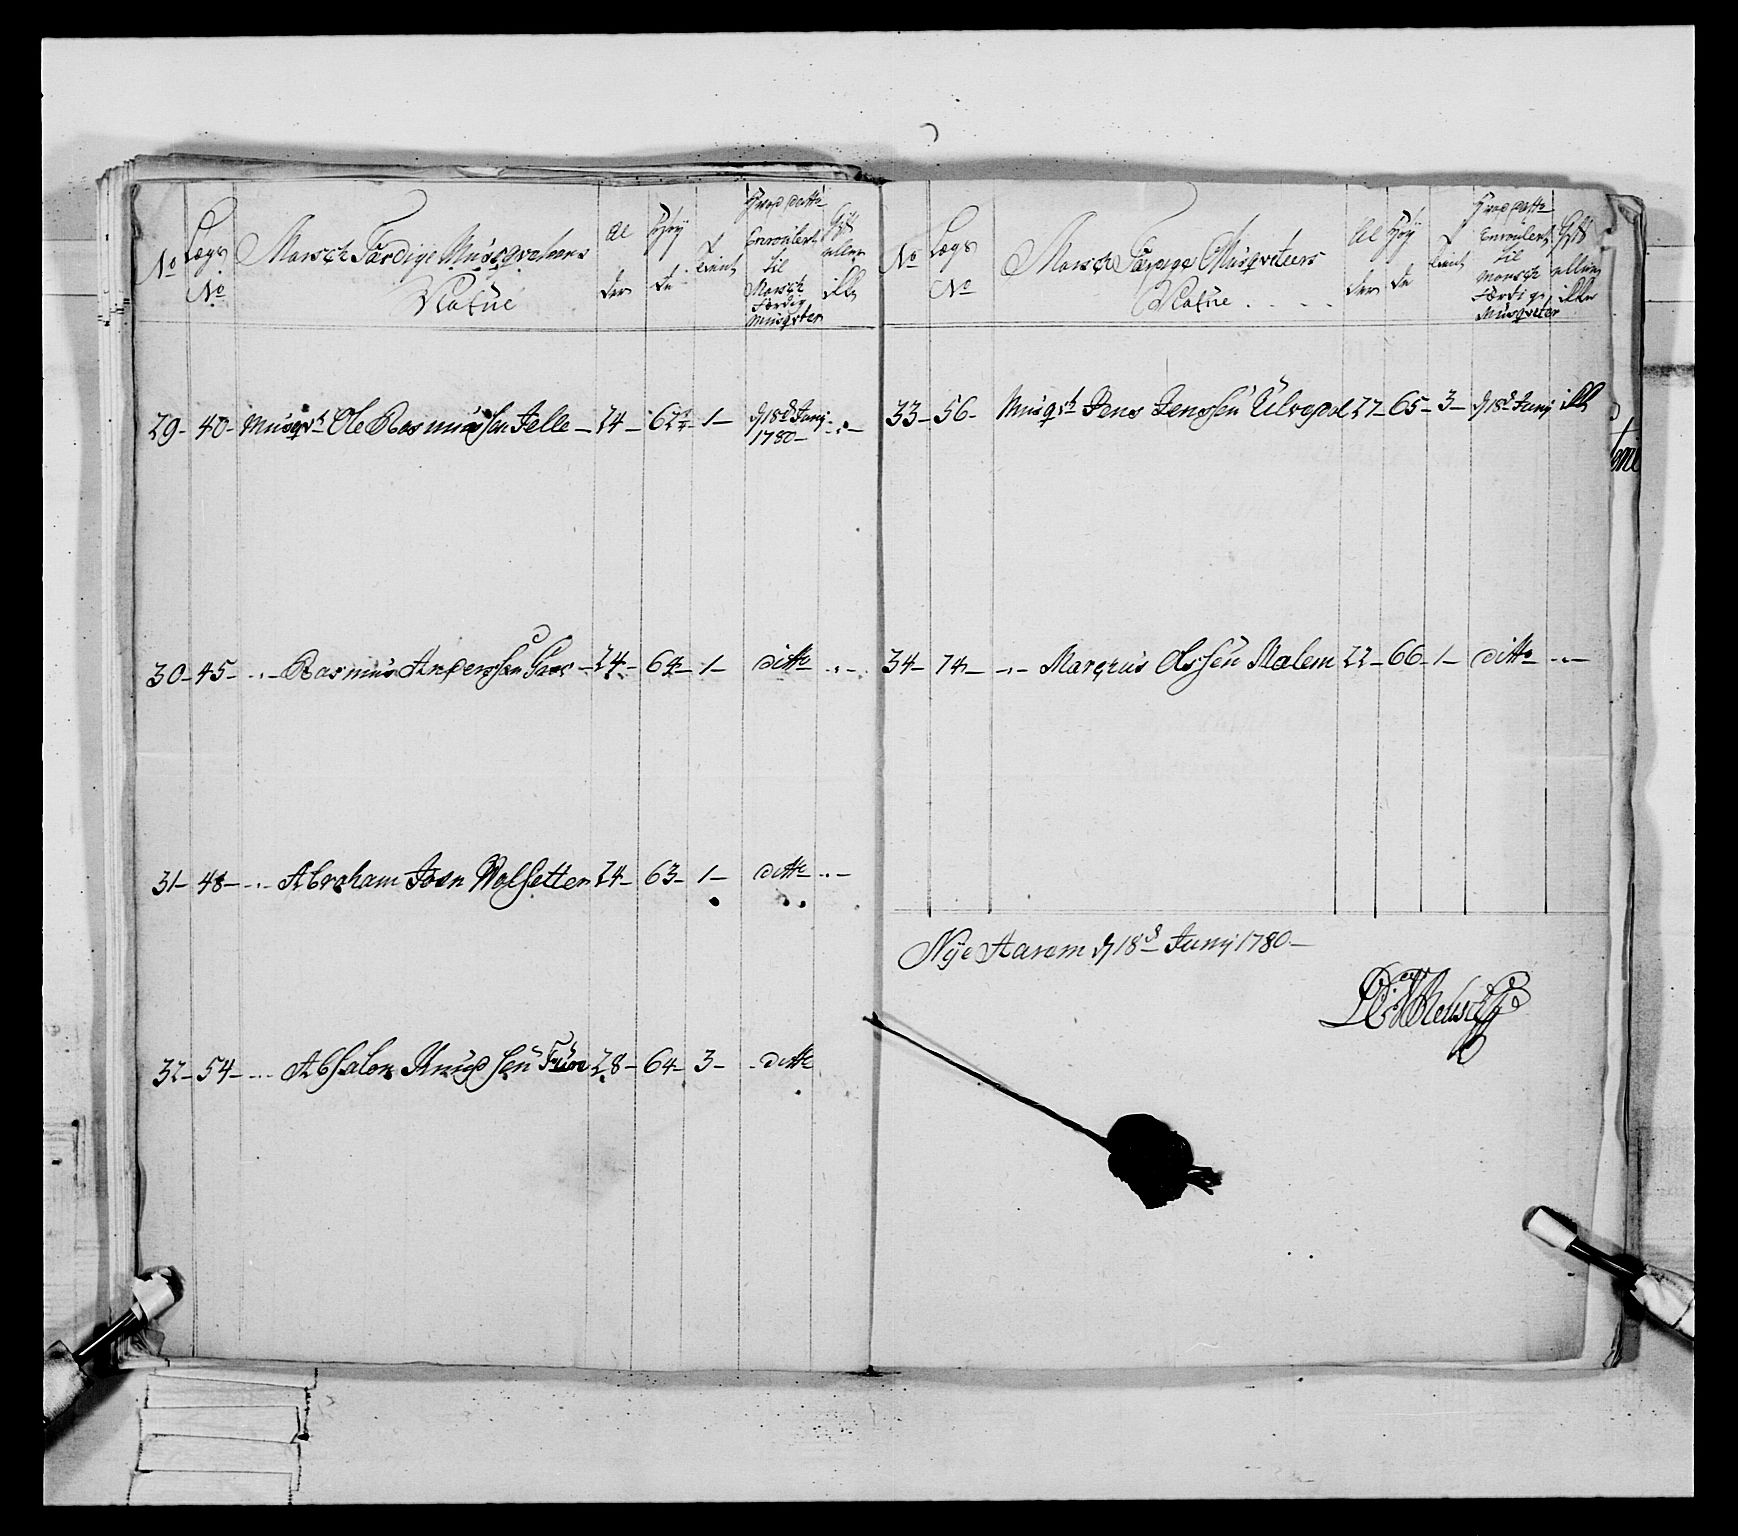 No
Lægs No
Marsch Færdige Musqveteers Nafne
Al der
Høy de
Hvad datto Enroulert til Marsch Færdig Musqveter
Gift eller ikke
29- 40- Musqvt Ole Rasmussen Felle - 24- 62½ 1- d 18d Junij 1780-
30- 45- Rasmus Anderssen 24- 64- 1- ditto
31- 48- Abraham Joen Wolsetter 24- 63- 1- ditto
32- 54- Absalon Knudssen 28- 64- 3- ditto
No
Lægs No
Marsch Færdige Musqveteers Nafne
Al der
Høy de
Hvad datto Enroulert til Marsch Færdige Musqveter
Gift eller ikke
33- 56- Musqvt Jens Jenssen Ulvesod 27- 65- 3- d 18d Junij ikke
34- 74- Marqrus Olssen Malem 22- 66- 1- ditto
Nye Aarem d 18d Junij 1780-